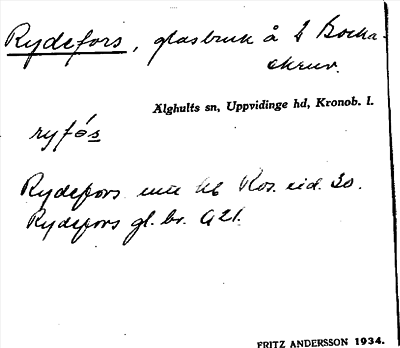 Rydefors, glasbruk å f Bocka-
skruv.
Älghults sn, Uppvidinge hd, Kronob. l.
ryfós
Rydefors Kos. eid. 30.
Rydefors gl. br. G 21.
FRITZ ANDERSSON 1934.